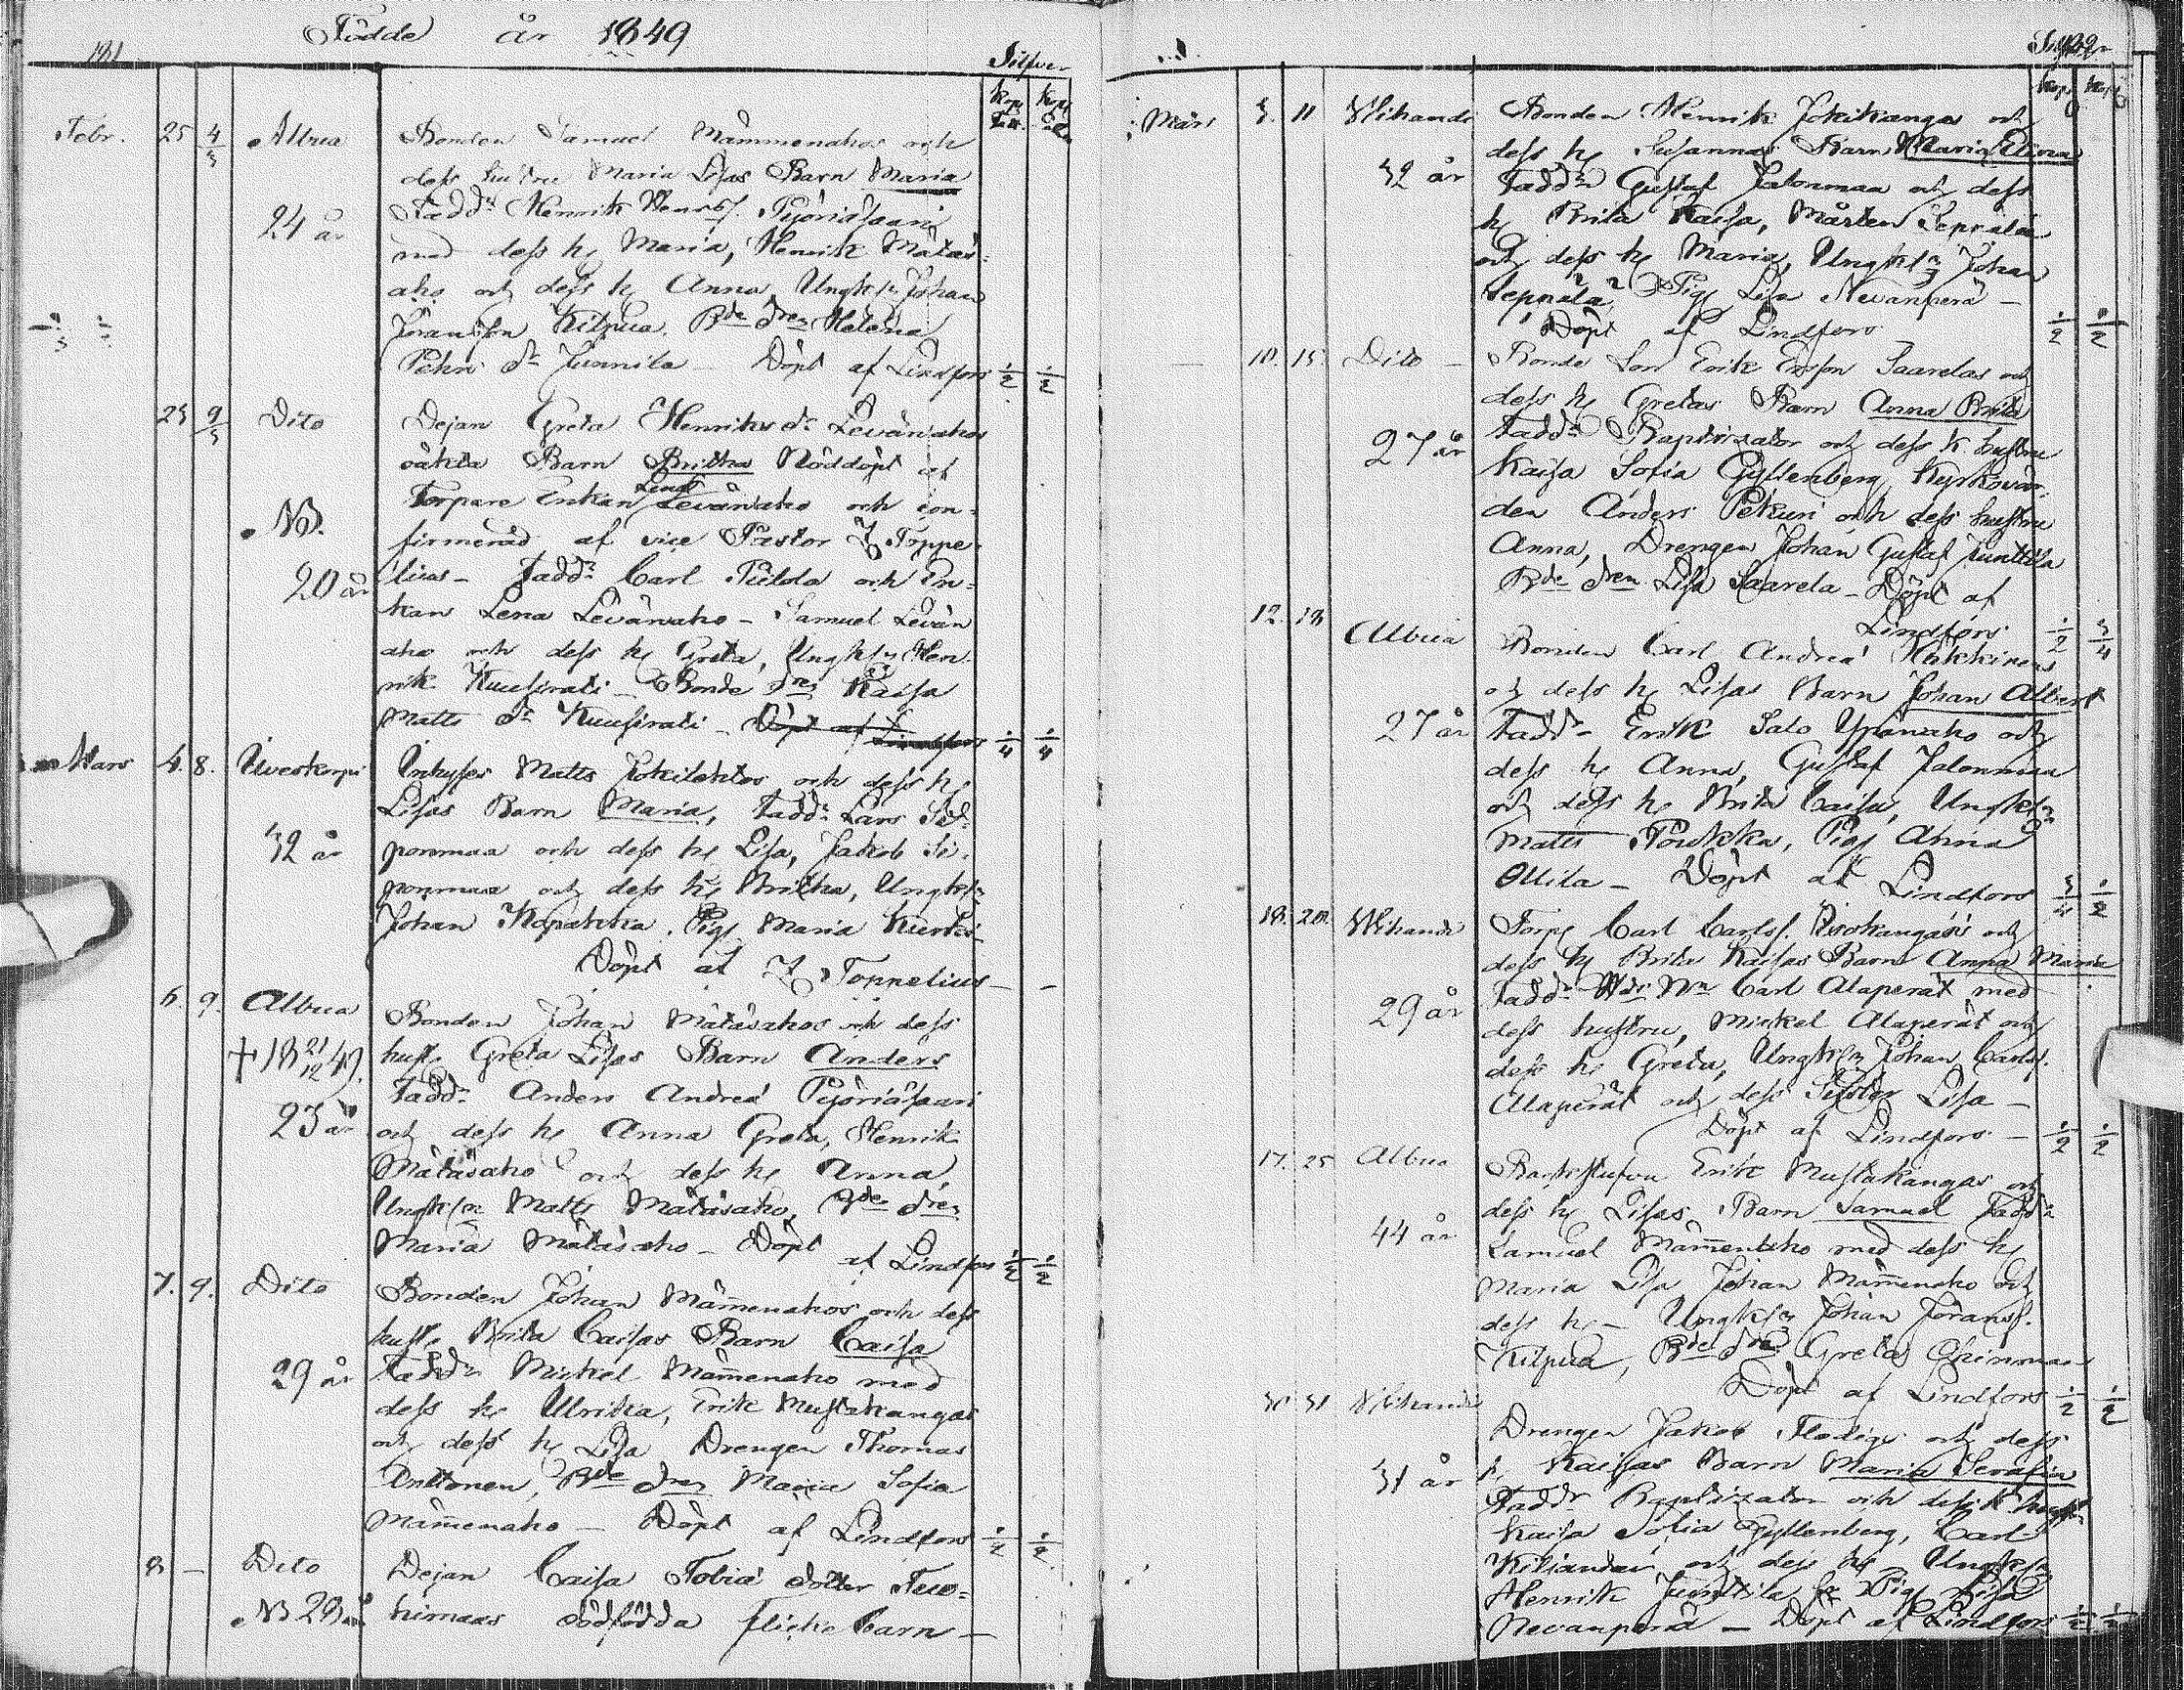 Födde år 1849
181
Silfver
Kop Kop
Febr. 25 4/3 Albua Bonden Samuel Mämmenahos och
dess hustru Maria Lisas Barn Maria
24 år Faddr Henrik Henrikss. Pyöriäsaari
med dess h. Maria, Henrik Matas-
aho och dess h. Anna, Ungk:n Johan
Göransson Kilpua, Bde drn Helena
Pehrs dr Junnila Döpt af Lindfors 1/2 1/2
25 9/3 Dito Dejan Greta Henriks dr Levänahos
oäkta Barn Britha Nöddöpt af
Torpare Enkan Lena Levänaho och con-
NB. firmerad af vice Pastor Z Toppe-
20 år lius - Faddr Carl Pietola och En-
kan Lena Levänaho - Samuel Levän
aho och dess h. Greta, Ungk:n Hen-
rik Kuusirati - Bonde drn Kaisa
Matts dr Kuusirati - Döpt af Lindfors 1/4 1/4
Mars 4. 8. Matts Jokilehtos och dess h.
Lisas Barn Maria, Faddr Lars Si-
32 år ponmaa och dess h. Lisa, Jakob Si-
ponmaa och dess h. Britha, Ungk:n
Johan Kopakka, Pig. Maria
Döpt af Z Toppelius - -
6. 9. Albua Bonden Johan Matasahos och dess
+ 18 21/12 49. hust. Greta Lisas Barn Anders
Faddr Anders Andreä Pyöriäsaari
23 år och dess h. Anna Greta, Henrik
Matasaho och dess h. Anna,
Ungk:n Matts Matasaho, Bde drn
Maria Matasaho - Döpt af Lindfors 1/2 1/2
7. 9. Dito Bonden Johan Mämmenahos och dess
hust. Brita Caisas Barn Caisa
29 år Faddr Mickel Mämmenaho med
dess h. Ulrika, Erik Mustakangas
och dess h. Lisa Drengen Thomas
Anttonen, Bde drn Maria Sofia
Mämmenaho - Döpt af Lindfors 1/2 1/2
8 - Dito Dejan Caisa Tobiä dotter
NB 29 år dödfödda flicke barn -
Silfver
Kop Kop
Mars 3. 11 Wihandi Bonden Henrik Jokikangas och
dess h. Susannas Barn Maria Elina
32 år Faddr Gustaf Jalonmaa och dess
h. Brita Kaisa, Mårten Seppälä
och dess h. Maria, Ungk:n Johan
Seppälä, Pig. Lisa Nevanperä -
Döpt af Lindfors 1/2 1/2
— 10. 15. Dito - Bonde Son Erik Ersson Saarelas och
dess h. Gretas Barn Anna Brita
27 år Faddr Baptizator och dess k. hustru
Kaisa Sofia Gyllenberg, Kyrkovär-
den Anders Pekuri och dess hustru
Anna, Drengen Johan Gustaf Junttila
Bde drn Lisa Saarela - Döpt af
Lindfors 1/2 3/4
12. 18 Albua Bonden Carl Andreä
och dess h. Lisas Barn Johan Albert
27 år Faddr Erik Salo Ypänaho och
dess h. Anna, Gustaf Jalonmaa
och dess h. Brita Caisa, Ungk:n
Matts Pig. Anna
Ollila - Döpt af Lindfors 3/4 1/2
18. 20. Wihandi Torp. Carl Carlss. och
dess h. Brita Kaisas Barn Anna Maria
29 år Faddr Carl Alaperät med
dess hustru, Mickel Alaperät och
dess h. Greta, Ungk:n Johan Carlss.
Alaperät och dess Syster Lisa -
Döpt af Lindfors - 1/2 1/2
17. 25 Albua Erik Mustakangas och
dess h. Lisas Barn Samuel Faddr
44 år Samuel Mämmenaho med dess h.
Maria Lisa Johan Mämmenaho och
dess h. - Ungk:n Johan Göranss.
Kilpua, Bde drn Greta
Döpt af Lindfors 1/2 1/2
30 31 Wihandi Drengen Jakob och dess
31 år h. Kaisas Barn Maria Serafia
Faddr Baptizator och dess k hustru
Kaisa Sofia Gyllenberg, Carl
Kiljander och dess h. Ungk:n
Henrik Junttila Pig. Lisa
Nevanperä - Döpt af Lindfors 1/2 1/2